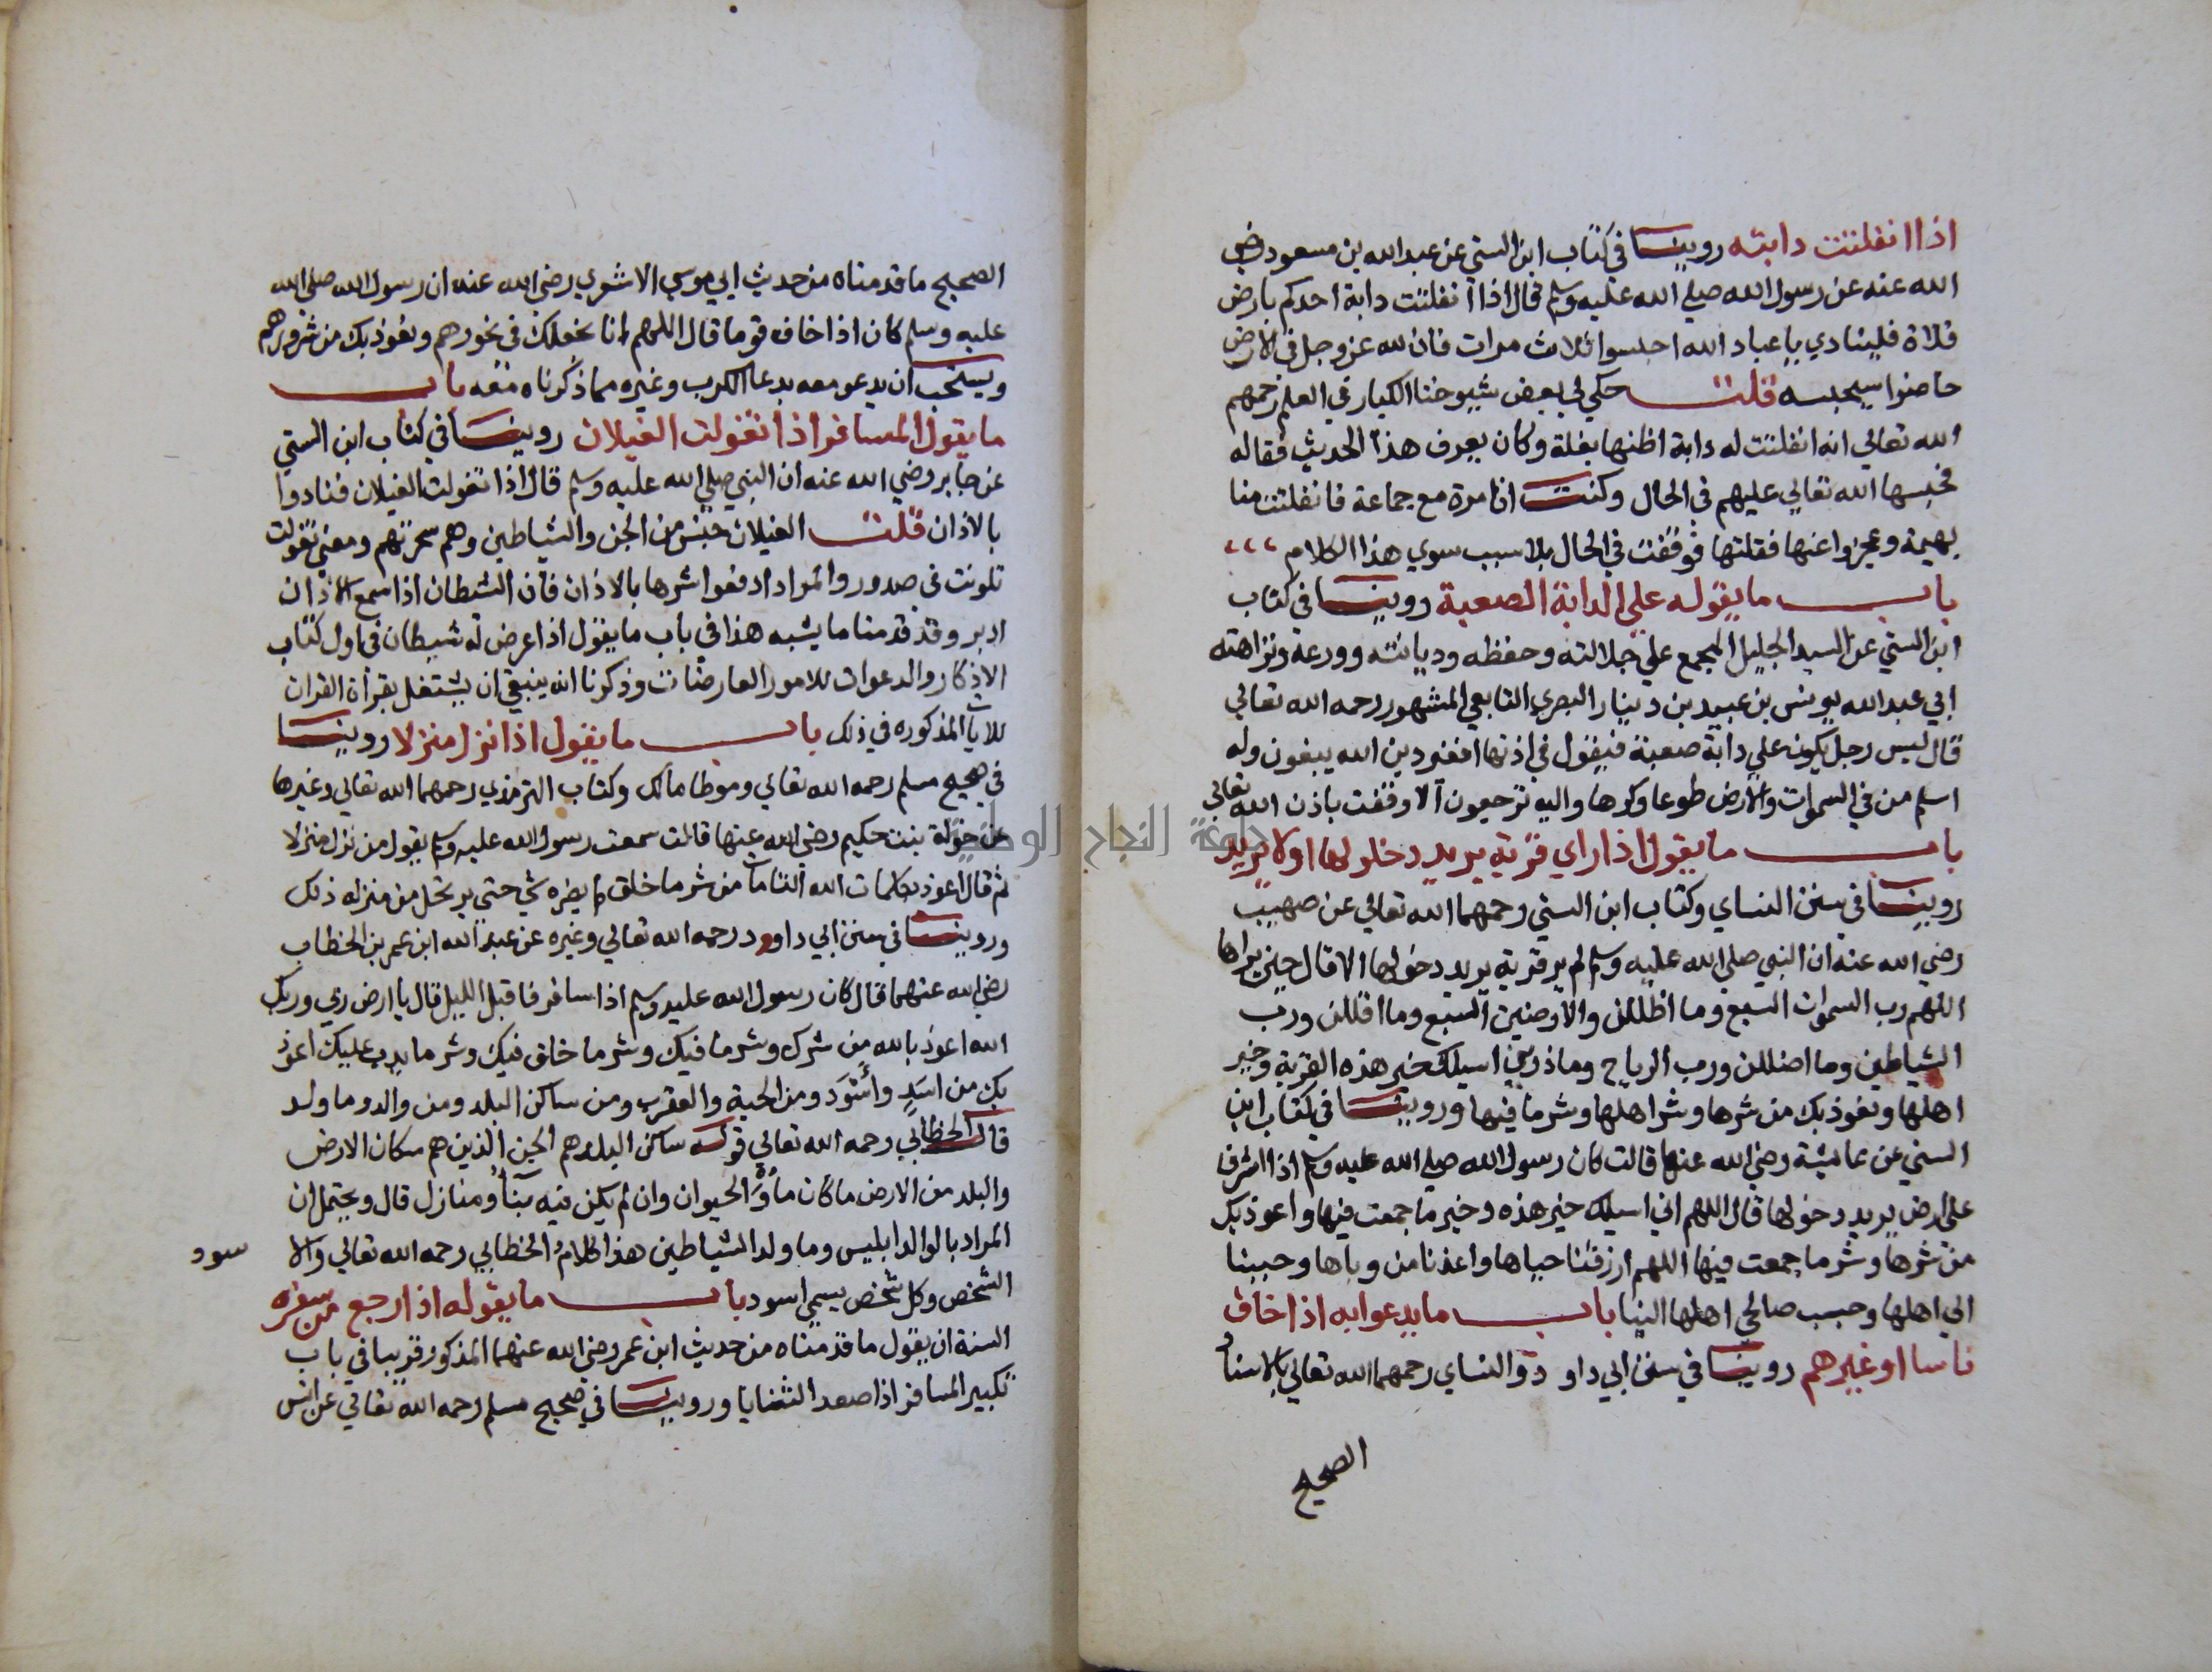 اذا انفلتت دابته روينا في كتاب ابن السني عن عبدالله بن مسعود رضي
الله عنه عن رسول الله صلي الله عليه وسلم قال اذا انفلتت دابة احدكم بارض
فلاة فلينادي يا عباد الله احبسوا ثلاث مرات فان لله عز وجل في الارض
حاصنوا سيحبسه قلت حكي لي بعض شيوخنا الكبار في العلم رحمهم
الله تعالي انه انفلتت له دابة اظنها بغلة وكان يعرف هذا الحديث فقاله
فحبسها الله تعالي عليهم في الحال وكنت انا مرة مع جماعة فانفلتت منا
بهيمة وعجزوا عنها فقلتها فوقفت في الحال بلا سبب سوي هذا الكلام
باب ما يقوله علي الدابة الصعبة روينا في كتاب
ابن السني عن السيد الجليل المجمع علي جلالته وحفظه وديانته وورعه ونزاهته
ابي عبدالله يونس بن عبيد بن دينار البصري التابعي المشهور رحمه الله تعالي
قال ليس رجل يكون علي دابة صعبة فيقول في اذنها افغير دين الله يبغون وله
اسلم من في السموات والارض طوعا وكرها واليه ترجعون الا وقفت باذن الله تعالي
باب ما يقول اذا راي قرية يريد دخولها اولا يريد
روينا في سنن النساي وكتاب ابن السني رحمهما الله تعالي عن صهيب
رضي الله عنه ان النبي صلي الله عليه وسلم لم ير قرية يريد دخولها الا قال حين يراها
اللهم رب السموات السبع وما اظللن والارضين السبع وما اقللن ورب
الشياطين وما اضللن ورب الرياح وما ذرين اسيلك خير هذه القرية وخير
اهلها ونعوذ بك من شرها وشر اهلها وشر ما فيها وروينا في كتاب ابن
السني عن عايشة رضي الله عنها قالت كان رسول الله صلي الله عليه وسلم اذا اشرف
علي ارض يريد دخولها قال اللهم اني اسيلك خير هذه وخير ما جمعت فيها واعوذ بك
من شرها وشر ما جمعت فيها اللهم ارزقنا حياها واعذنا من وباها وحببنا
الي اهلها وحبب صالحي اهلها الينا باب ما يدعوا به اذا خاف
ناسا او غيرهم روينا في سنن ابي داود والنساي رحمهما الله تعالي بالاسناد
الصحيح
الصحيح ما قدمناه من حديث ابي موسي الاشعري رضي الله عنه ان رسول الله صلي الله
عليه وسلم كان اذا خاف قوما قال اللهم انا نجعلك في نحورهم ونعوذ بك من شرورهم
ويستحب ان يدعو معه بدعا الكرب وغيره مما ذكرناه معه باب
ما يقول المسافر اذا تغولت الغيلان روينا في كتاب ابن السني
عن جابر رضي الله عنه ان النبي صلي الله عليه وسلم قال اذا تغولت الغيلان فنادوا
بالاذان قلت الغيلان جنس من الجن والشياطين وهم سحرتهم ومعني تغولت
تلونت في صدور والمراد ادفعوا شرها بالاذان فان الشطان اذا سمع الاذان
ادبر وقد قدمنا ما يشبه هذا في باب ما يقول اذا عرض له شيطان في اول كتاب
الاذكار والدعوات للامور العارضات وذكرنا انه ينبغي ان يشتغل بقرأة القران
للايات المذكوره في ذلك باب ما يقول اذا نزل منزلا روينا
في صحيح مسلم رحمه الله تعالي وموطا مالك وكتاب الترمذي رحمهما الله تعالي وغيرها
عن خولة بنت حكيم رضي الله عنها قالت سمعت رسول الله عليه وسلم يقول من نزل منزلا
ثم قال اعوذ بكلمات الله التامات من شر ما خلق لم يضره شي حتي يرتحل من منزله ذلك
وروينا في سنن ابي داوود رحمه الله تعالي وغيره عن عبد الله ابن عمر بن الخطاب
رضي الله عنهما قال كان رسول الله عليه وسلم اذا سافر فاقبل الليل قال يا ارض ربي وربك
الله اعوذ بالله من شرك وشر ما فيك وشر ما خلق فيك وشر ما يدب عليك اعوذ
بك من اسد وأسود ومن الحية والعقرب ومن ساكن البلد ومن والد وما ولد
قال الخطابي رحمه الله تعالي قوله ساكن البلد هم الجن الذين هم سكان الارض
والبلد من الارض ما كان مأوي الحيوان وان لم يكن فيه بنأ ومنازل قال ويحتمل ان
المراد بالوالد ابليس وما ولد الشياطين هذا كلام الخطابي رحمه الله تعالي والا سود
الشخص وكل شخص يسمي اسود باب ما يقوله اذا رجع من سفره
السنة ان يقول ما قدمناه من حديث ابن عمر رضي الله عنهما المذكور قريبا في باب
تكبير المسافر اذا صعد الثنايا وروينا في صحيح مسلم رحمه الله تعالي عن انس
جامعة النجاح الوطنية